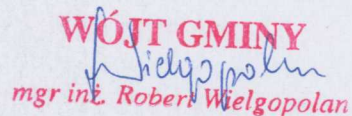 WÓJT GMINY
Wielgopolan
mgr inż. Robert Wielgopolan